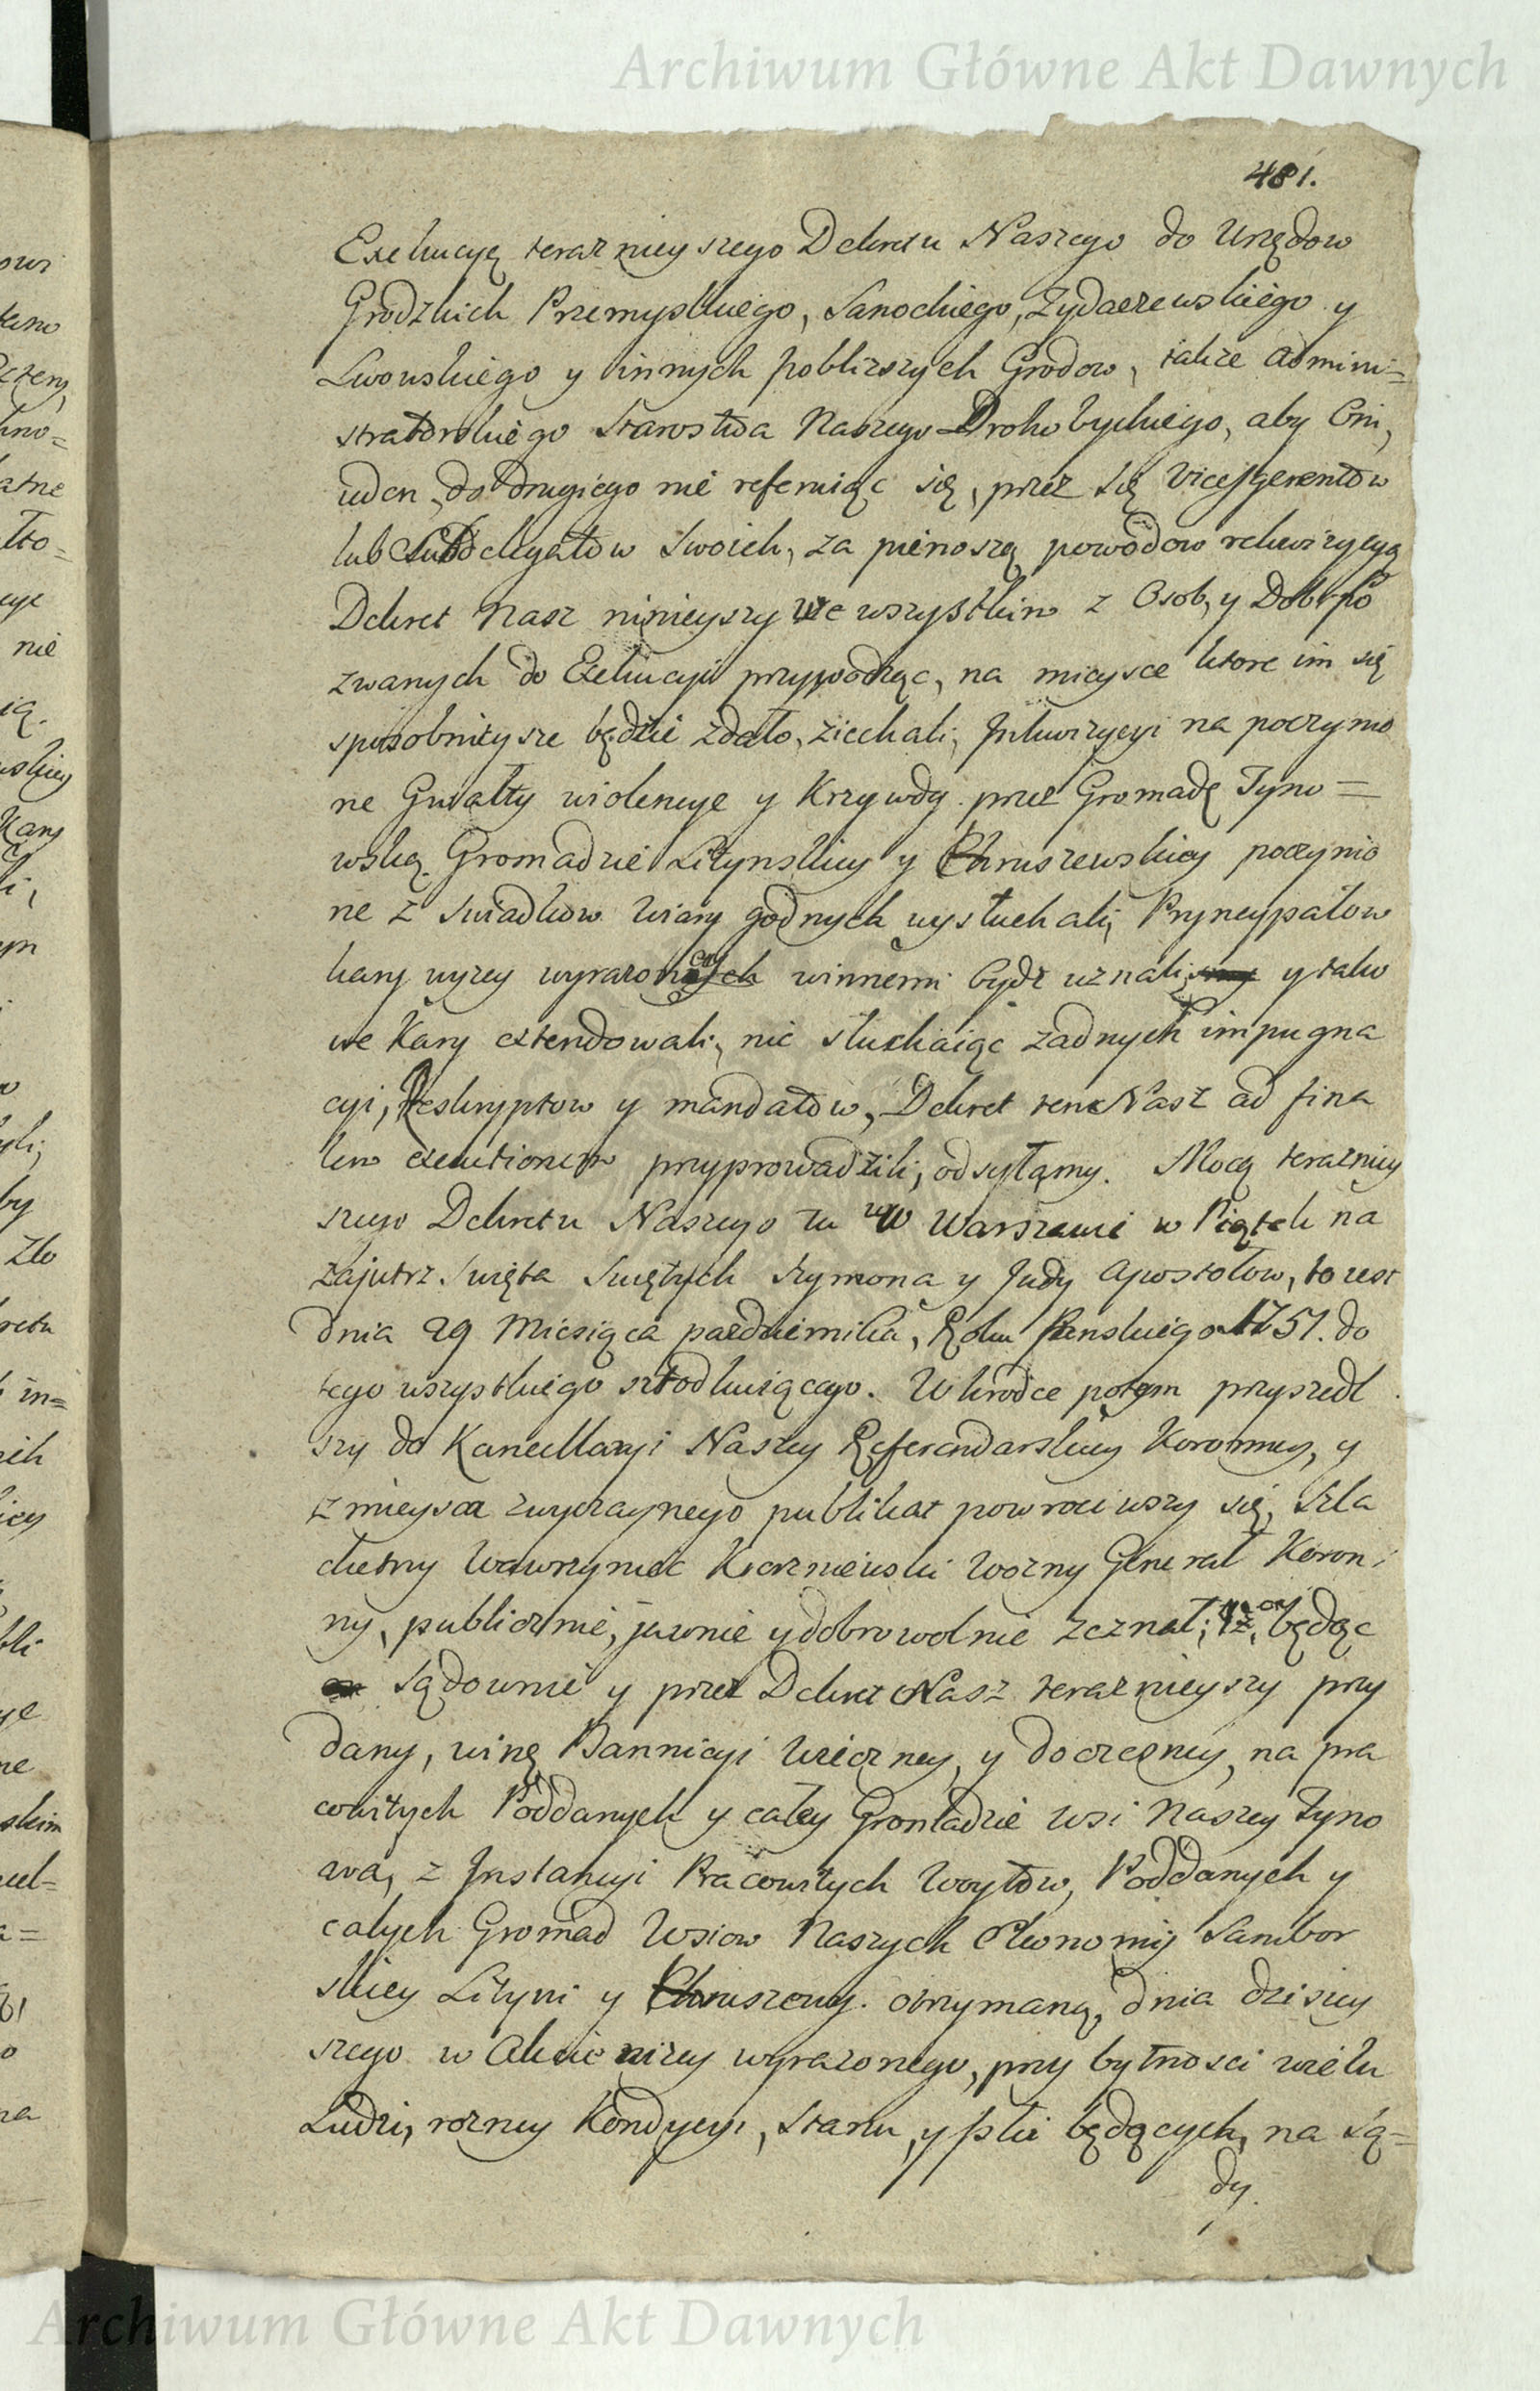 Archiwum Główne Akt Dawnych
481.
Exekucyę teraznieyszego Dekretu Naszego do Urzędow
Grodzkich Przemyskiego, Sanockiego, Zydaczewskiego y
Lwowskiego y innych pobliższych Grodow, także admini=
stratorskiego Starostwa Naszego Drohobyckiego, aby Oni,
ieden do drugiego nie referuiąc się, przez się Vicesgerentow
lub Subdelegatow swoich, za pierwszą powodow rekwizycyą
Dekret Nasz ninieyszy we wszystkim z Osob, y Dobr po
zwanych do Exekucyi przywodząc, na mieysce ktore im się
sposobnieysze będzie zdało, ziechali, Inkwizycyi na poczynio
ne Gwałty wiolencye y Krzywdy przez Gromadę Tyno=
wską Gromadzie Lityńskiey y Chruszewskiey poczynio
ne z swiadkow wiary godnych wysłuchali, Pryncypałow
kary wyzey wyrazoney winnemi bydz uznali, y tako
we Kary extendowali, nie słuchaiąc zadnych impugna
cyi, Reskryptow y mandatow, Dekret ten Nasz ad fina
lem executionem przyprowadzili, odsyłamy. Mocą terazniey
szego Dekretu Naszego tu w Warszawie w Piątek na
zajutrz Swięta Swiętych Szymona y Judy Apostołow, to iest
dnia 29 Miesiąca pazdziernika, Roku Panskiego 1751. do
tego wszystkiego szłodkuiącego. Wkrodce potym przyszedł
szy do Kancellaryi Naszey Referendarskiey Koronney, y
z mieysca zwyczaynego publikat powrociwszy się, Szla
chetny Wawrzyniec Kiorzniewski Wozny Generał Koron
ny, publicznie, jawnie y dobrowolnie zeznał; iz on będąc
sądownie y przez Dekret Nasz teraznieyszy przy
dany, winę Bannicyi wieczney, y doczesney, na pra
cowitych Poddanych y całey Gromadzie wsi Naszey Tyno
wa, z Instancyi Pracowitych Woytow, Poddanych y
całych Gromad Wsiow Naszych Ekonomij Sambor
skiey Lityni y Chruszowey otrzymaną, dnia dzisiey
szego w akcie nizey wyrazonego, przy bytnosci wielu
Ludzi, rozney Kondycyi, stanu, y płci będących, na są=
dy.
Archiwum Główne Akt Dawnych